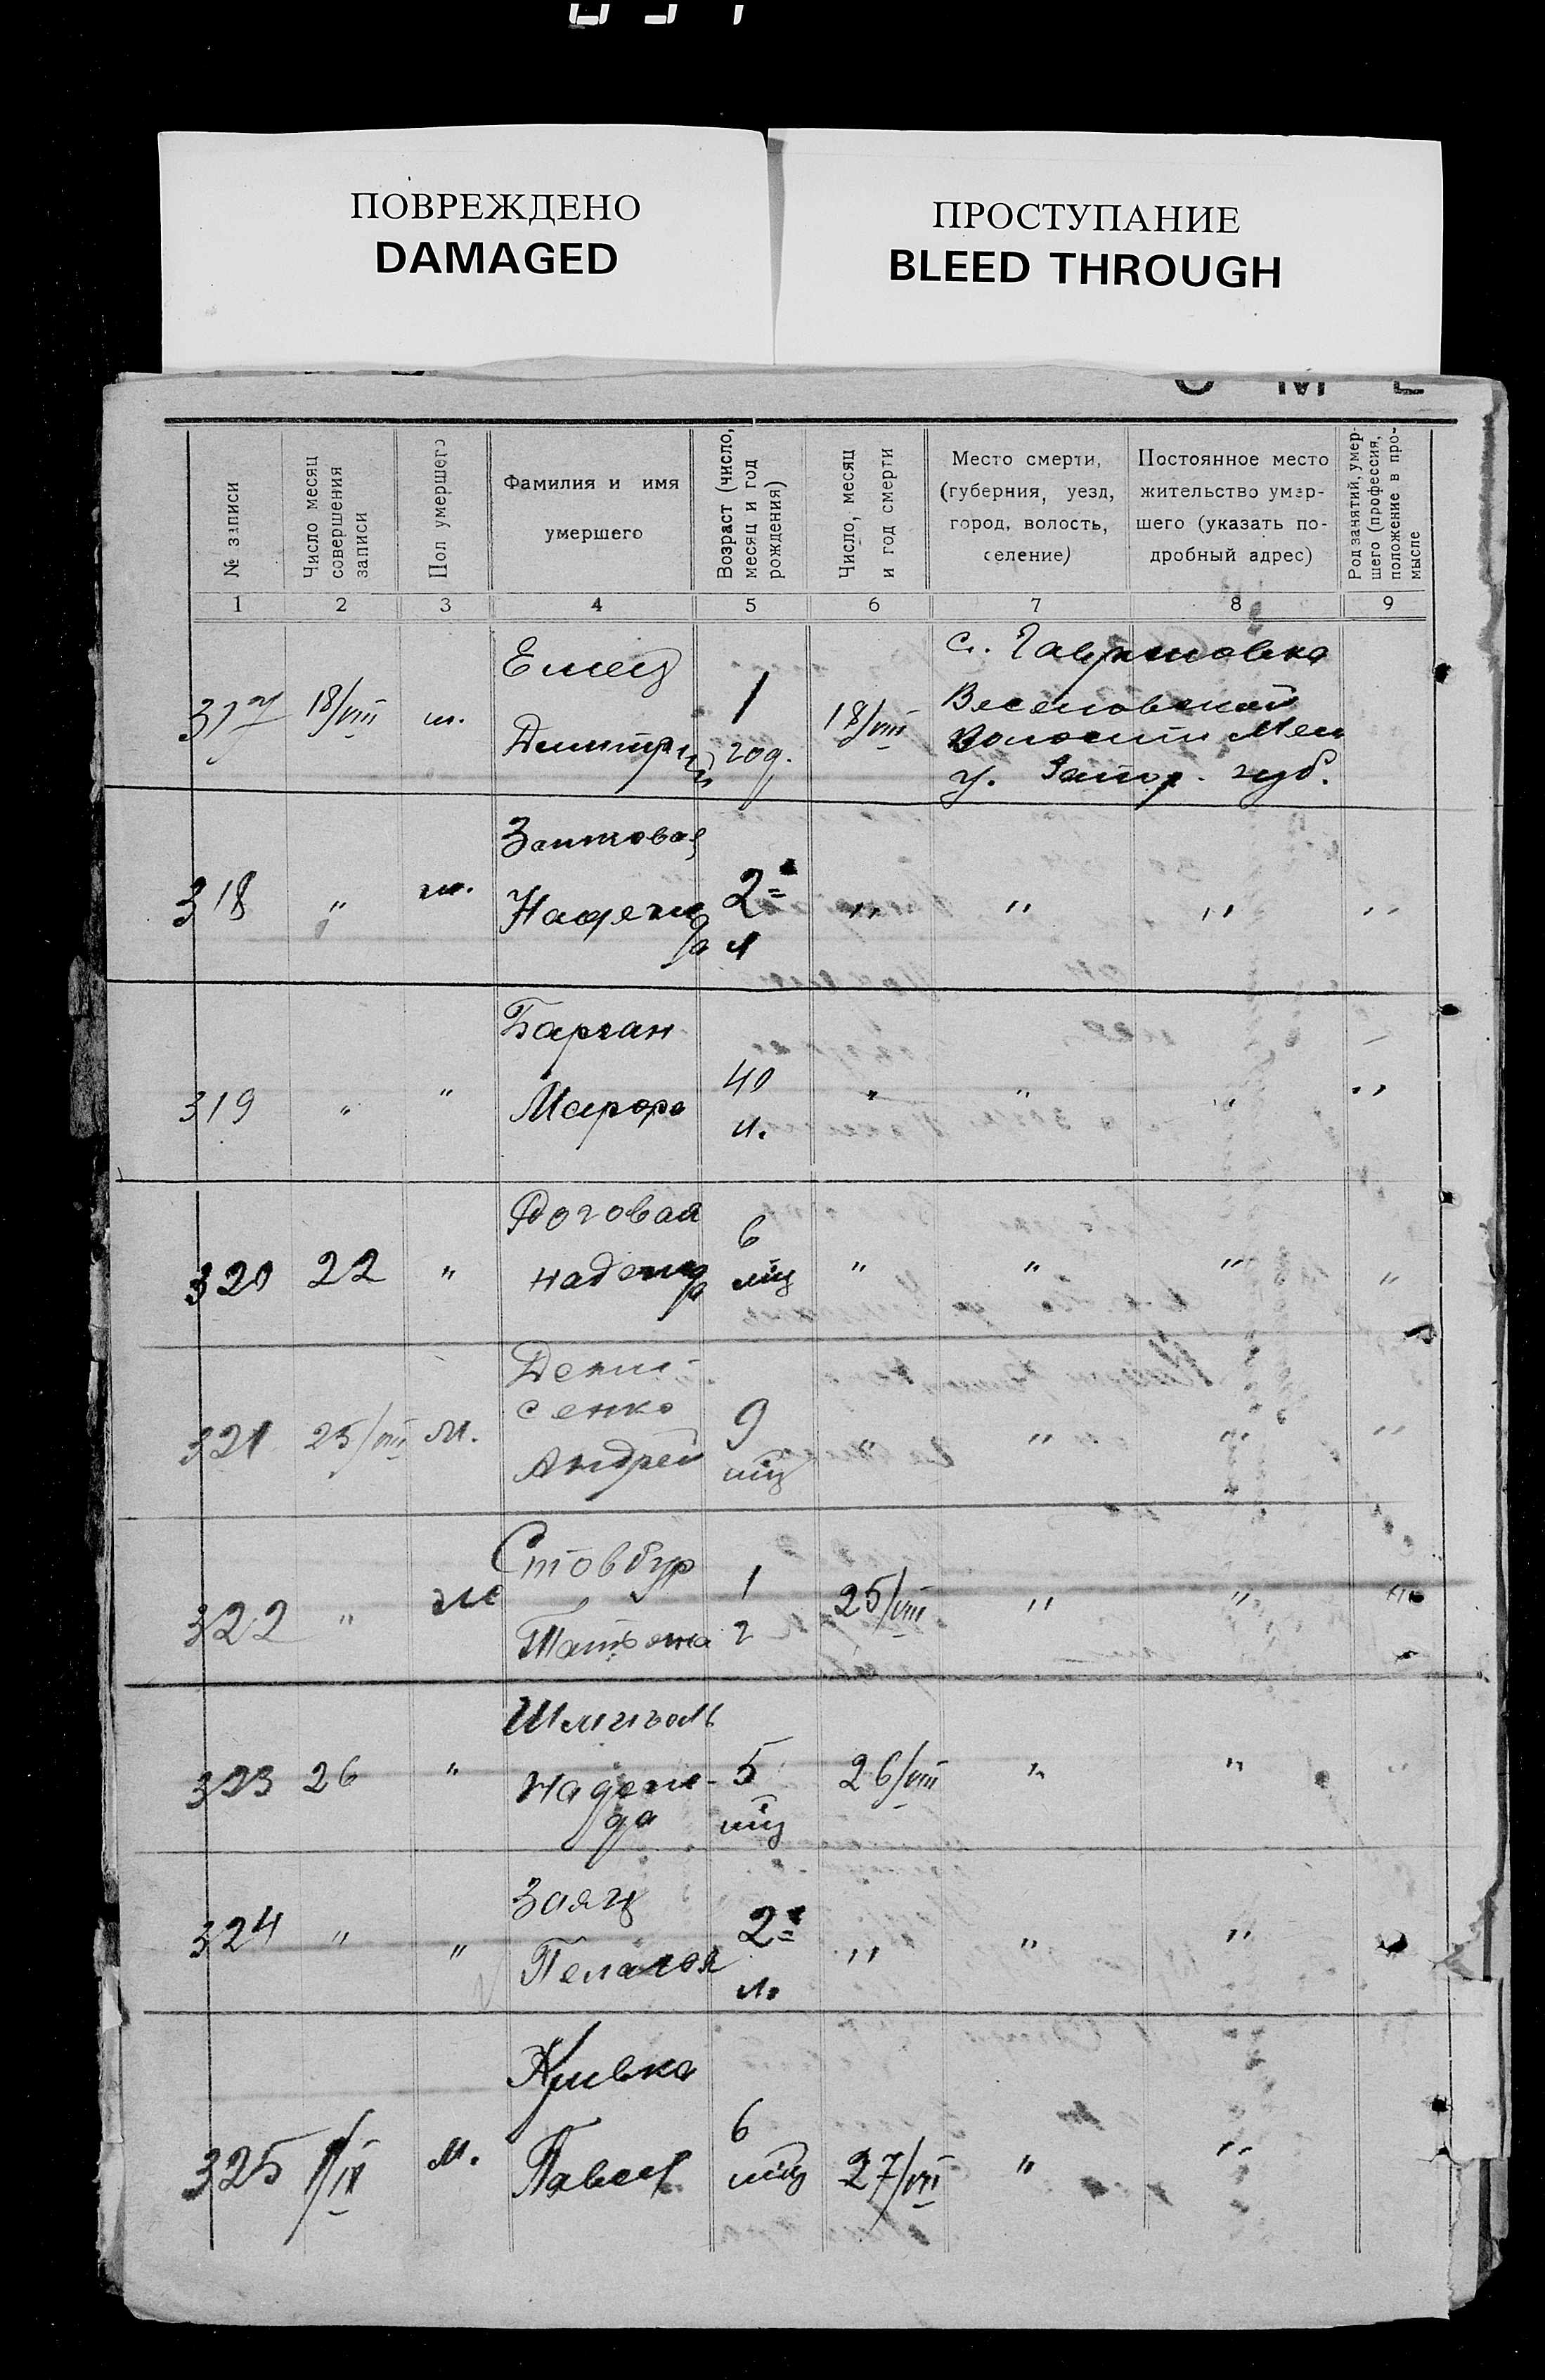 ПОВРЕЖДЕНО
DAMAGED
ПРОСТУПАНИЕ
BLEED THROUGH
№ записи
Число месяц
совершения
записи
Пол умершего
Фамилия и имя
умершего
Возраст (число,
месяц и год
рождения)
Число, месяц
и год смерти
Место смерти,
(губерния, уезд,
город, волость,
селение)
Постоянное место
жительство умер-
шего (указать по-
дробный адрес)
Род занятий, умер-
шего (профессия,
положение в про-
мысле
1 2 3 4 5 6 7 8 9
317 18/VIII м. Емец
Дмитрий
1
год.
18/VIII
с. Гавриловка
Веселовской
Волости Мел
у. Запор. губ.
318 " ж.
Надеж
да
2
л
" " " "
319 " "
Барган
Марфа
40
л.
" " " "
320 22 "
Роговая
Надежда
6
міц
" " " "
321 25/VIII М.
Дени-
сенко
Андрей
9
міц
" " " "
322 " ж
Стовбур
Татьяна
1
г
25/VIII " " "
323 26 "
Шмигаль
Надеж-
да
5
міц
26/VIII " " "
324 " "
Заяц
Пелагея
2
л.
" " "
325 1/IX м.
Кривка
Павел
6
міц
27/VIII " "